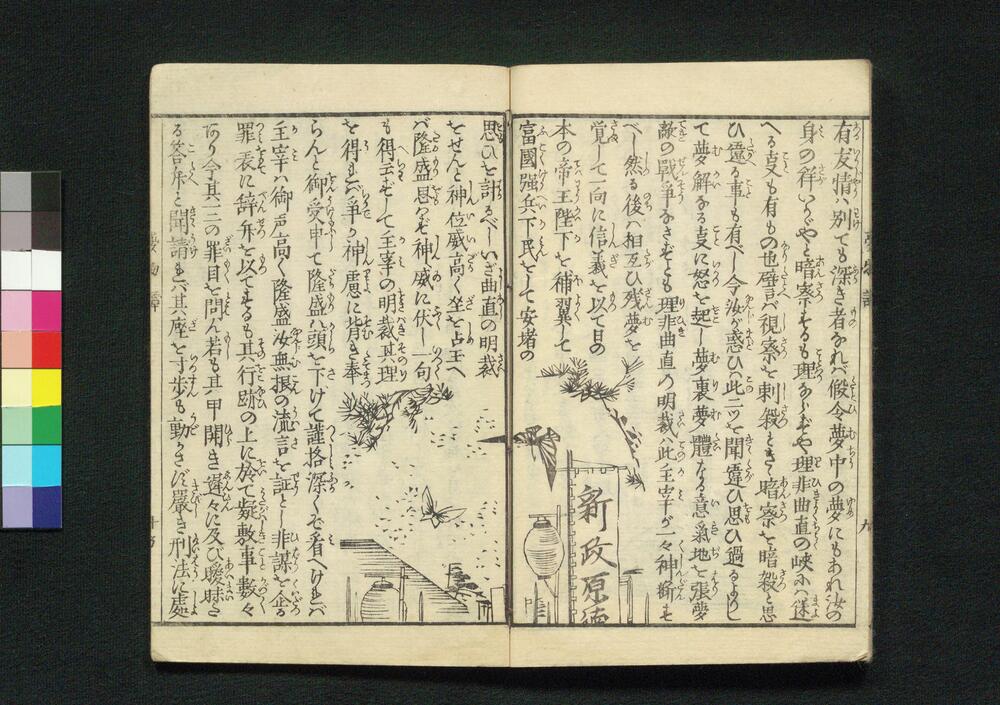 有友情ハ別ても深き者なれバ仮令夢中の夢にもあれ汝の
身の祥いかゞやと暗察するも理ならずや理非曲直の峡小ハ迷
へる支も有もの也譬バ視察を刺殺ときゝ暗察を暗殺と思
ひ違る事も有べし今汝が惑ひハ此二ツを聞違ひ思ひ過るよりし
て夢解なる支に怒を起し夢裏夢體なる意気地を張夢
敵の戦争なさずとも理非曲直の明裁ハ此主宰が二々神断も
べし然る後ハ相互ひ残夢を
覚して一向に信義を以て日の
本の帝王陛下を補翼して
富國强兵下民をして安堵の
新政原徳
思ひを計るべしいざ曲直の明裁
をせんと神位威高く坐を占玉へ
バ隆盛思ハず神威に伏し一句
も得云ずして主宰の明裁其理
を得れバ争か神慮に背き奉
らんと御受申て隆盛ハ頭を下けて謹挌深くぞ看へけれバ
主宰ハ御声高く隆盛汝無根の流言を証とし非謀を企る
罪表に辞弁を以てするも其行跡の上に於て疑敷事数々
あり今其一二の罪目を問ん若も其甲聞き遲々に及び曖昧た
る答弁と聞請れバ其座を寸歩も動かさバ嚴き刑法に處